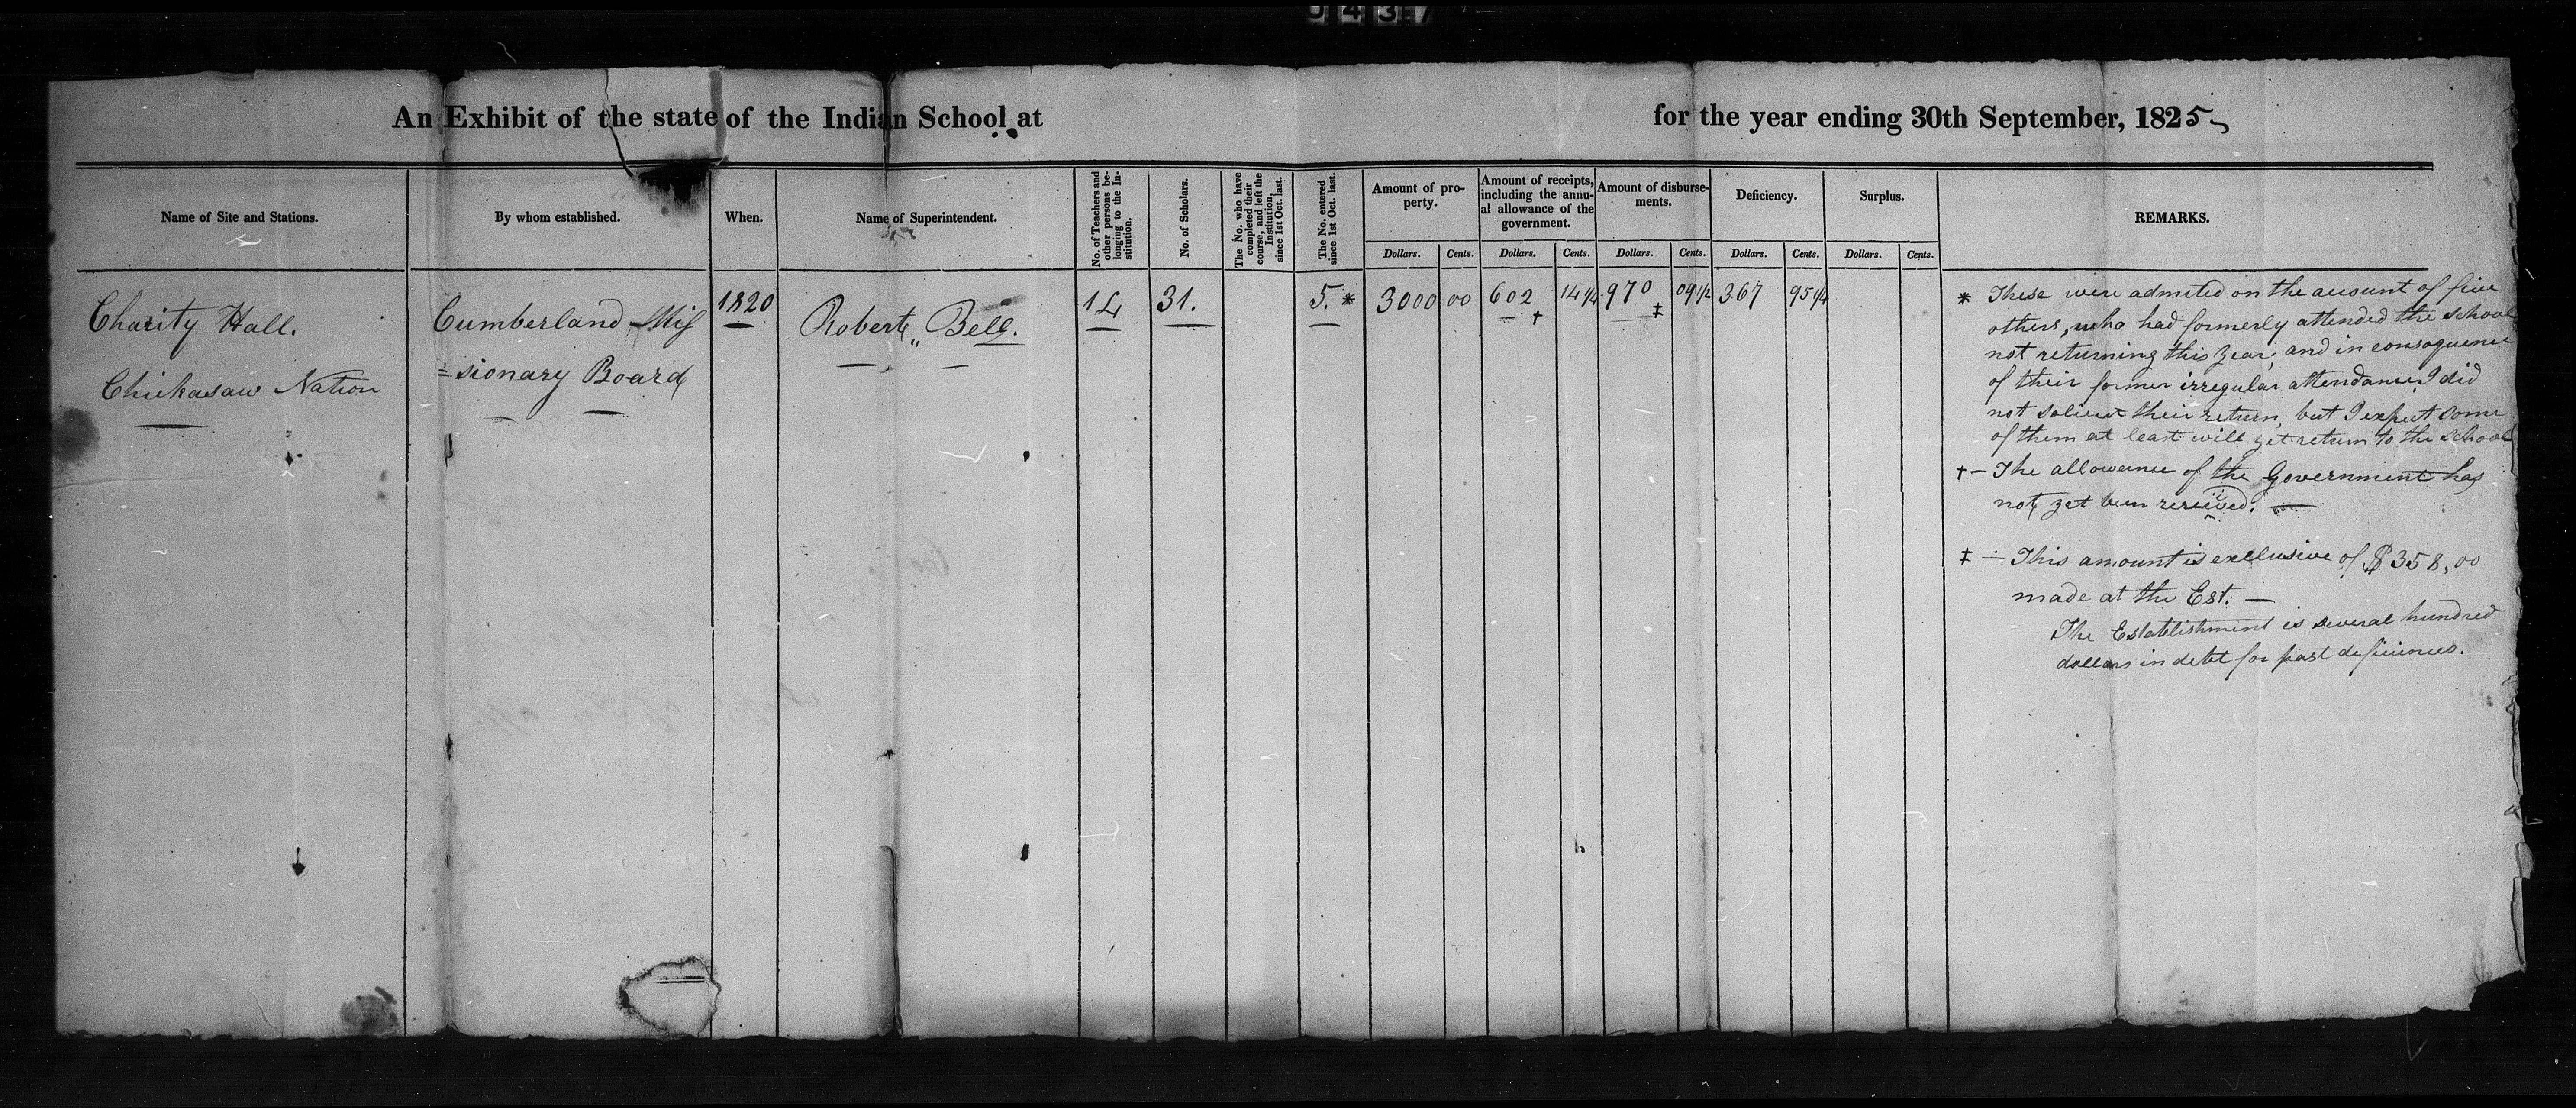 0437
An Exhibit of the state of the Indian School at for the year ending 30th September, 1825
Name of Site and Stations.
By whom established.
When.
Name of Superintendent.
No. of Teachers and
other persons be-
longing to the In-
stitution.
No. of Scholars.
The No. who have
completed their
course, and left the
Institution,
since 1st Oct. last.
The No. entered
since 1st Oct. last.
Amount of pro-
perty.
Amount of receipts,
including the annu-
al allowance of the
government.
Amount of disburse-
ments.
Deficiency.
Surplus.
REMARKS.
Dollars. Cents. Dollars. Cents. Dollars. Cents. Dollars. Cents. Dollars. Cents.
Charity Hall.
Chickasaw Nation
Cumberland Mis
=sionary Board
1820
Robert „ Bell.
14
31.
5. *
3000 00
602 † 14 1/4
970 ‡ 09 1/2
367 95 1/4
* These were admited on the account of five
others, who had formerly attended the school
not returning this year, and in consequence
of their former irregular attendance I did
not solicit their return, but I expect some
of them at least will yet return to the School
† – The allowance of the Government has
not yet been received. —
‡ – This amount is exclusive of $358,00
made at the Est. —
The Establishment is several hundred
dollars in debt for past deficiences.